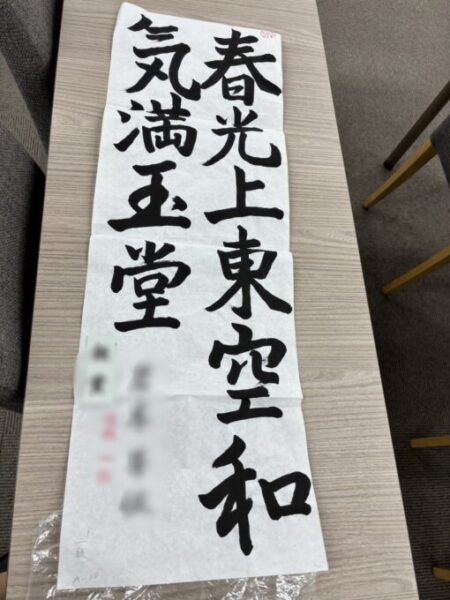 春光上東空和
気満玉堂